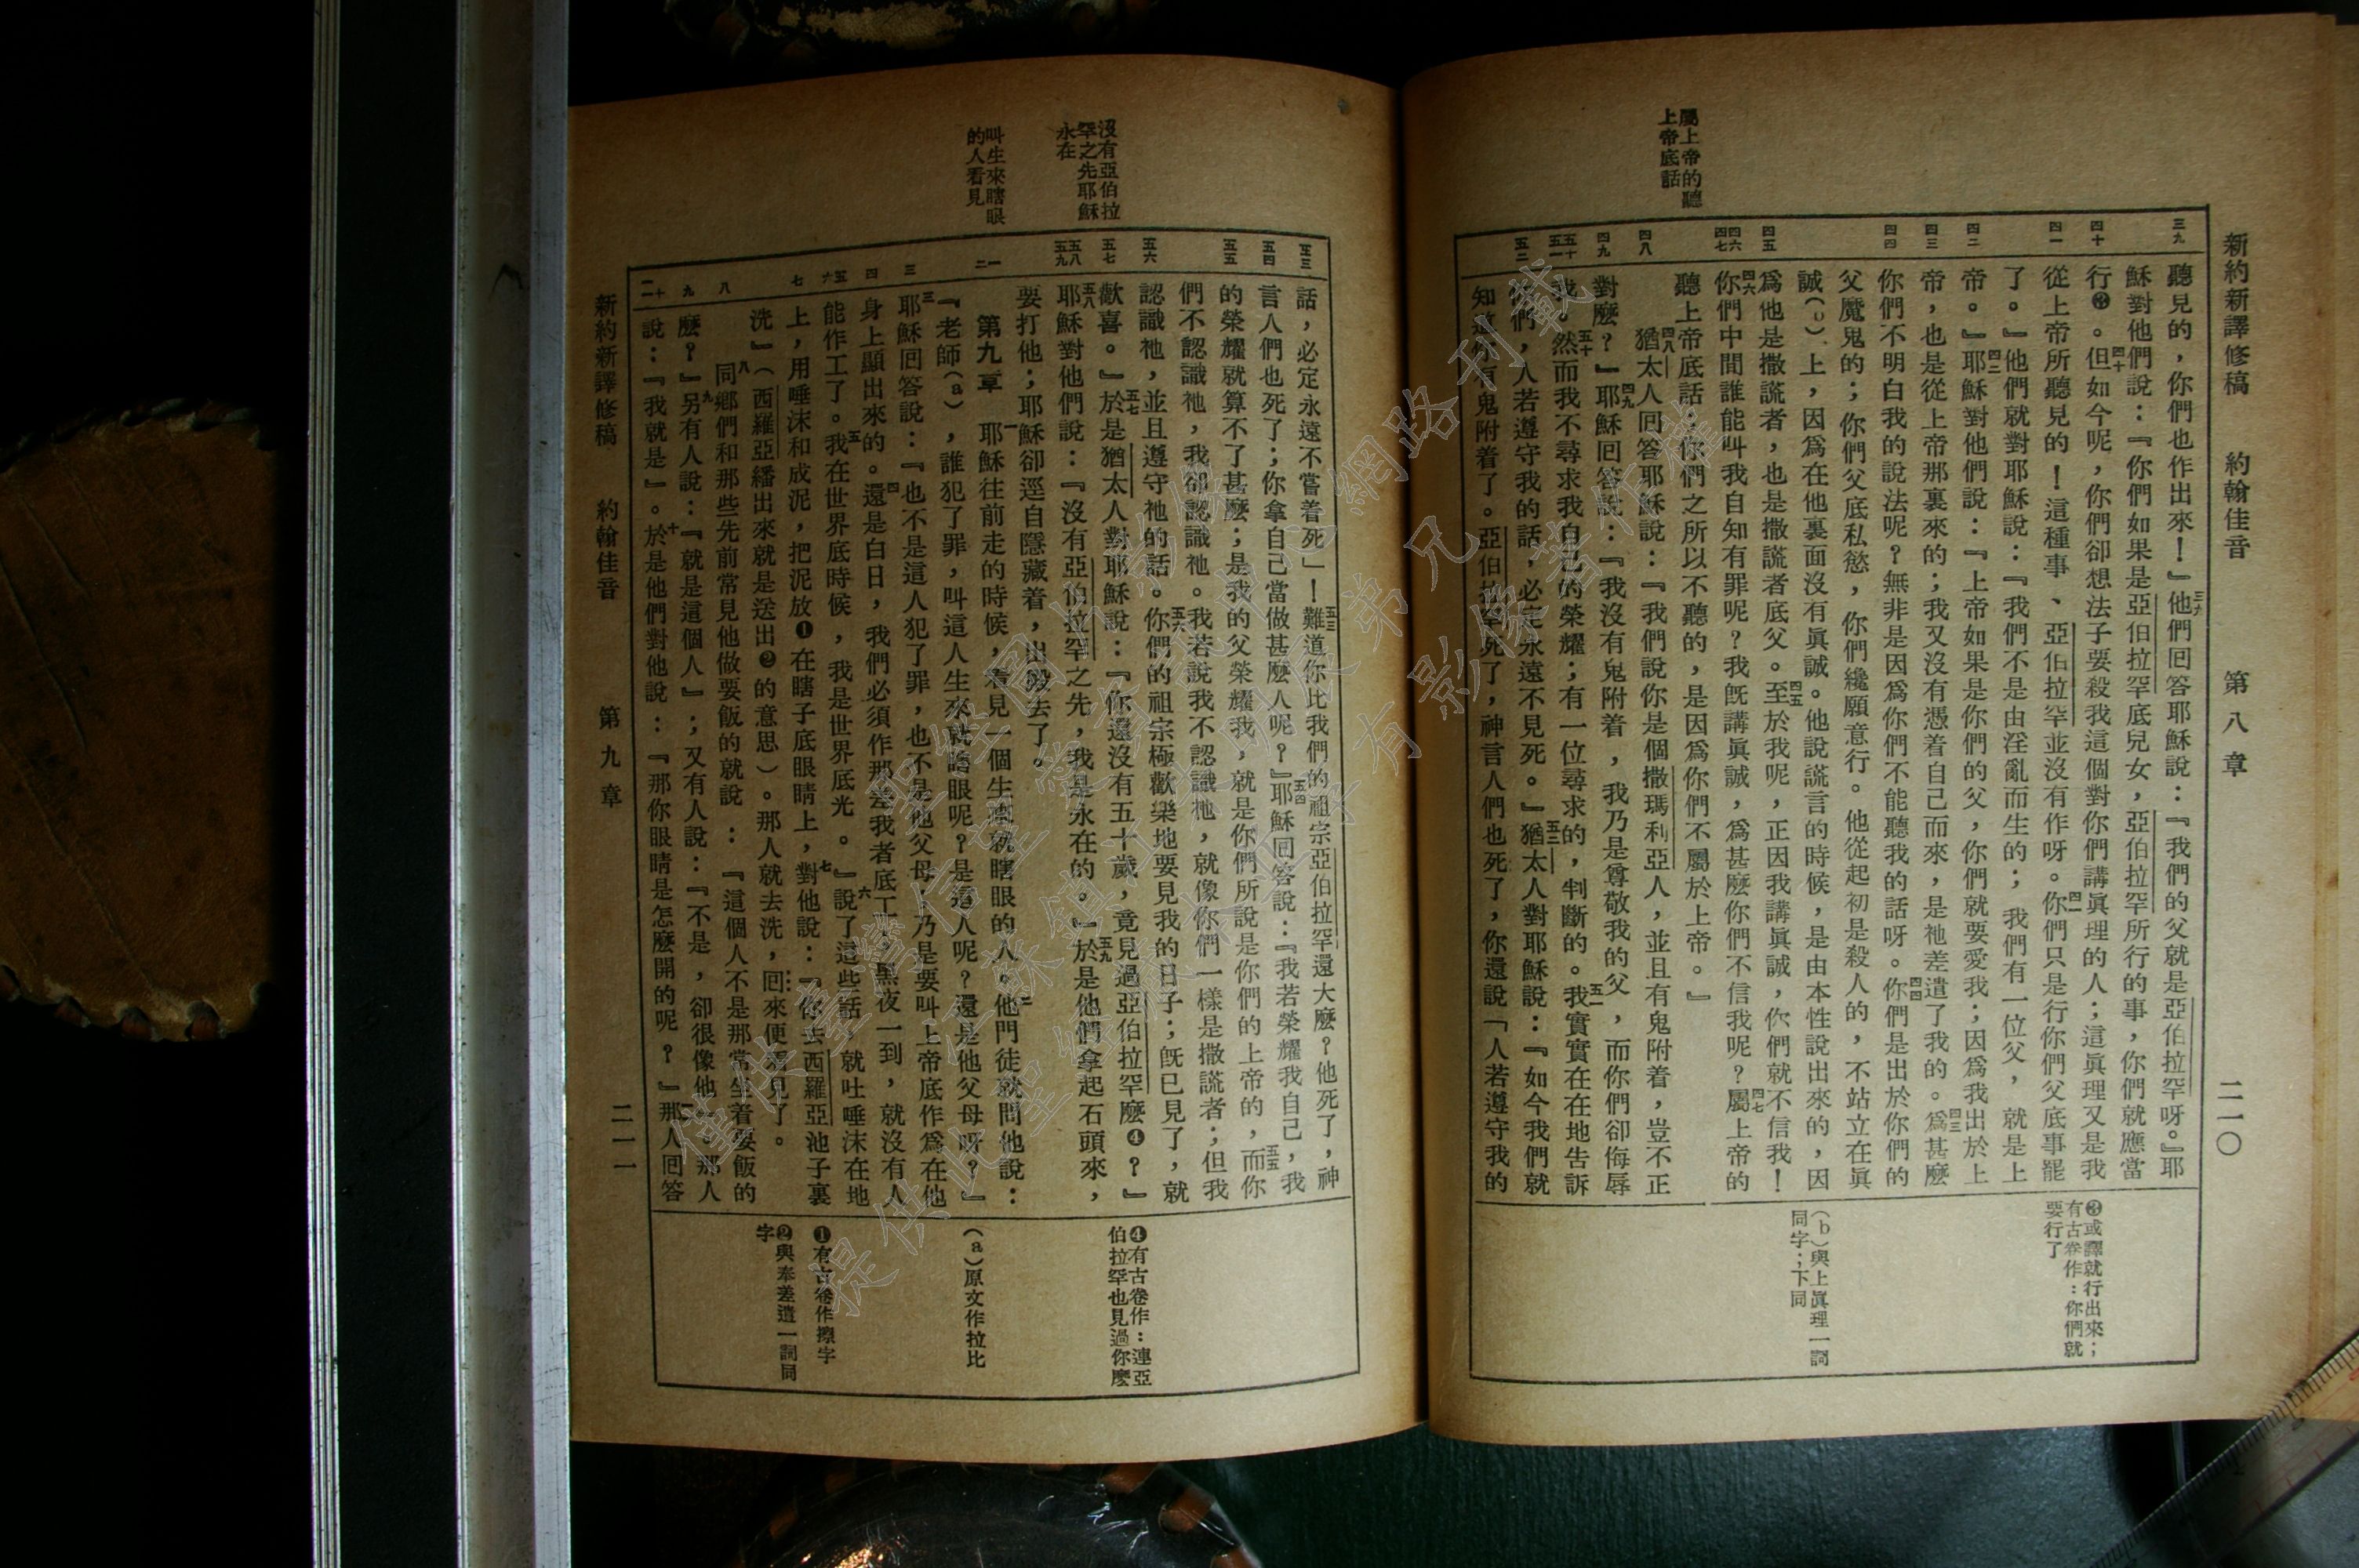 新約新譯修稿　約翰佳音　第八章　二一〇
屬上帝的聽
上帝底話
三九
四十
四一
四二
四三
四四
四五
四六
四七
四八
四九
五十
五一
五二
聽見的，你們也作出來！』三九他們回答耶穌說：『我們的父就是亞伯拉罕呀。』耶
穌對他們說：『你們如果是亞伯拉罕底兒女，亞伯拉罕所行的事，你們就應當
行❸。四十但如今呢，你們卻想法子要殺我這個對你們講眞理的人；這眞理又是我
從上帝所聽見的！這種事、亞伯拉罕並沒有作呀。四一你們只是行你們父底事罷
了。』他們就對耶穌說：『我們不是由淫亂而生的；我們有一位父，就是上
帝。』四二耶穌對他們說：『上帝如果是你們的父，你們就要愛我；因爲我出於上
帝，也是從上帝那裏來的；我又沒有憑着自己而來，是祂差遣了我的。四三爲甚麼
你們不明白我的說法呢？無非是因爲你們不能聽我的話呀。四四你們是出於你們的
父魔鬼的；你們父底私慾，你們纔願意行。他從起初是殺人的，不站立在眞
誠（b）上，因爲在他裏面沒有眞誠。他說謊言的時候，是由本性說出來的，因
爲他是撒謊者，也是撒謊者底父。四五至於我呢，正因我講眞誠，你們就不信我！
四六你們中間誰能叫我自知有罪呢？我旣講眞誠，爲甚麼你們不信我呢？四七屬上帝的
聽上帝底話；你們之所以不聽的，是因爲你們不屬於上帝。』
四八猶太人回答耶穌說：『我們說你是個撒瑪利亞人，並且有鬼附着，豈不正
對麼？』四九耶穌回答說：『我沒有鬼附着，我乃是尊敬我的父，而你們卻侮辱
我。五十然而我不尋求我自己的榮耀；有一位尋求的，判斷的。五一我實實在在地吿訴
你們，人若遵守我的話，必定永遠不見死。』五二猶太人對耶穌說：『如今我們就
知道你有鬼附着了。亞伯拉罕死了，神言人們也死了，你還說「人若遵守我的
❸或譯就行出來；
有古卷作：你們就
要行了
（b）與上眞理一詞
同字；下同
沒有亞伯拉
罕之先耶穌
永在
叫生來瞎眼
的人看見
五三
五四
五五
五六
五七
五八
五九
一
二
三
四
五
六
七
八
九
十
十一
話，必定永遠不嘗着死」！五三難道你比我們的祖宗亞伯拉罕還大麼？他死了，神
言人們也死了；你拿自己當做甚麼人呢？』五四耶穌回答說：『我若榮耀我自己，我
的榮耀就算不了甚麼；是我的父榮耀我，就是你們所說是你們的上帝的，五五而你
們不認識祂，我卻認識祂。我若說我不認識祂，就像你們一樣是撒謊者；但我
認識祂，並且遵守祂的話。五六你們的祖宗極歡樂地要見我的日子；旣已見了，就
歡喜。』五七於是猶太人對耶穌說：『你還沒有五十歲，竟見過亞伯拉罕麼❹？』
五八耶穌對他們說：『沒有亞伯拉罕之先，我是永在的。』五九於是他們拿起石頭來，
要打他；耶穌卻逕自隱藏着，出殿去了。
第九章　一耶穌往前走的時候，看見一個生來就瞎眼的人。二他門徒就問他說：
『老師（a），誰犯了罪，叫這人生來就瞎眼呢？是這人呢？還是他父母呀？』
三耶穌回答說：『也不是這人犯了罪，也不是他父母，乃是要叫上帝底作爲在他
身上顯出來的。四還是白日，我們必須作那差我者底工，黑夜一到，就沒有人
能作工了。五我在世界底時候，我是世界底光。』六說了這些話，就吐唾沫在地
上，用唾沫和成泥，把泥放❶在瞎子底眼睛上，七對他說：『你去西羅亞池子裏
洗』（西羅亞繙出來就是送出❷的意思）。那人就去洗，回來便看見了。
八同鄉們和那些先前常見他做要飯的就說：『這個人不是那常坐着要飯的
麼？』九另有人說：『就是這個人』；又有人說：『不是，卻很像他』。那人
說：『我就是』。十於是他們對他說：『那你眼睛是怎麼開的呢？』十一那人回答
❹有古卷作：連亞
伯拉罕也見過你麼
（a）原文作拉比
❶有古卷作擦字
❷與奉差遣一詞同
字
新約新譯修稿　約翰佳音　第九章　二一一